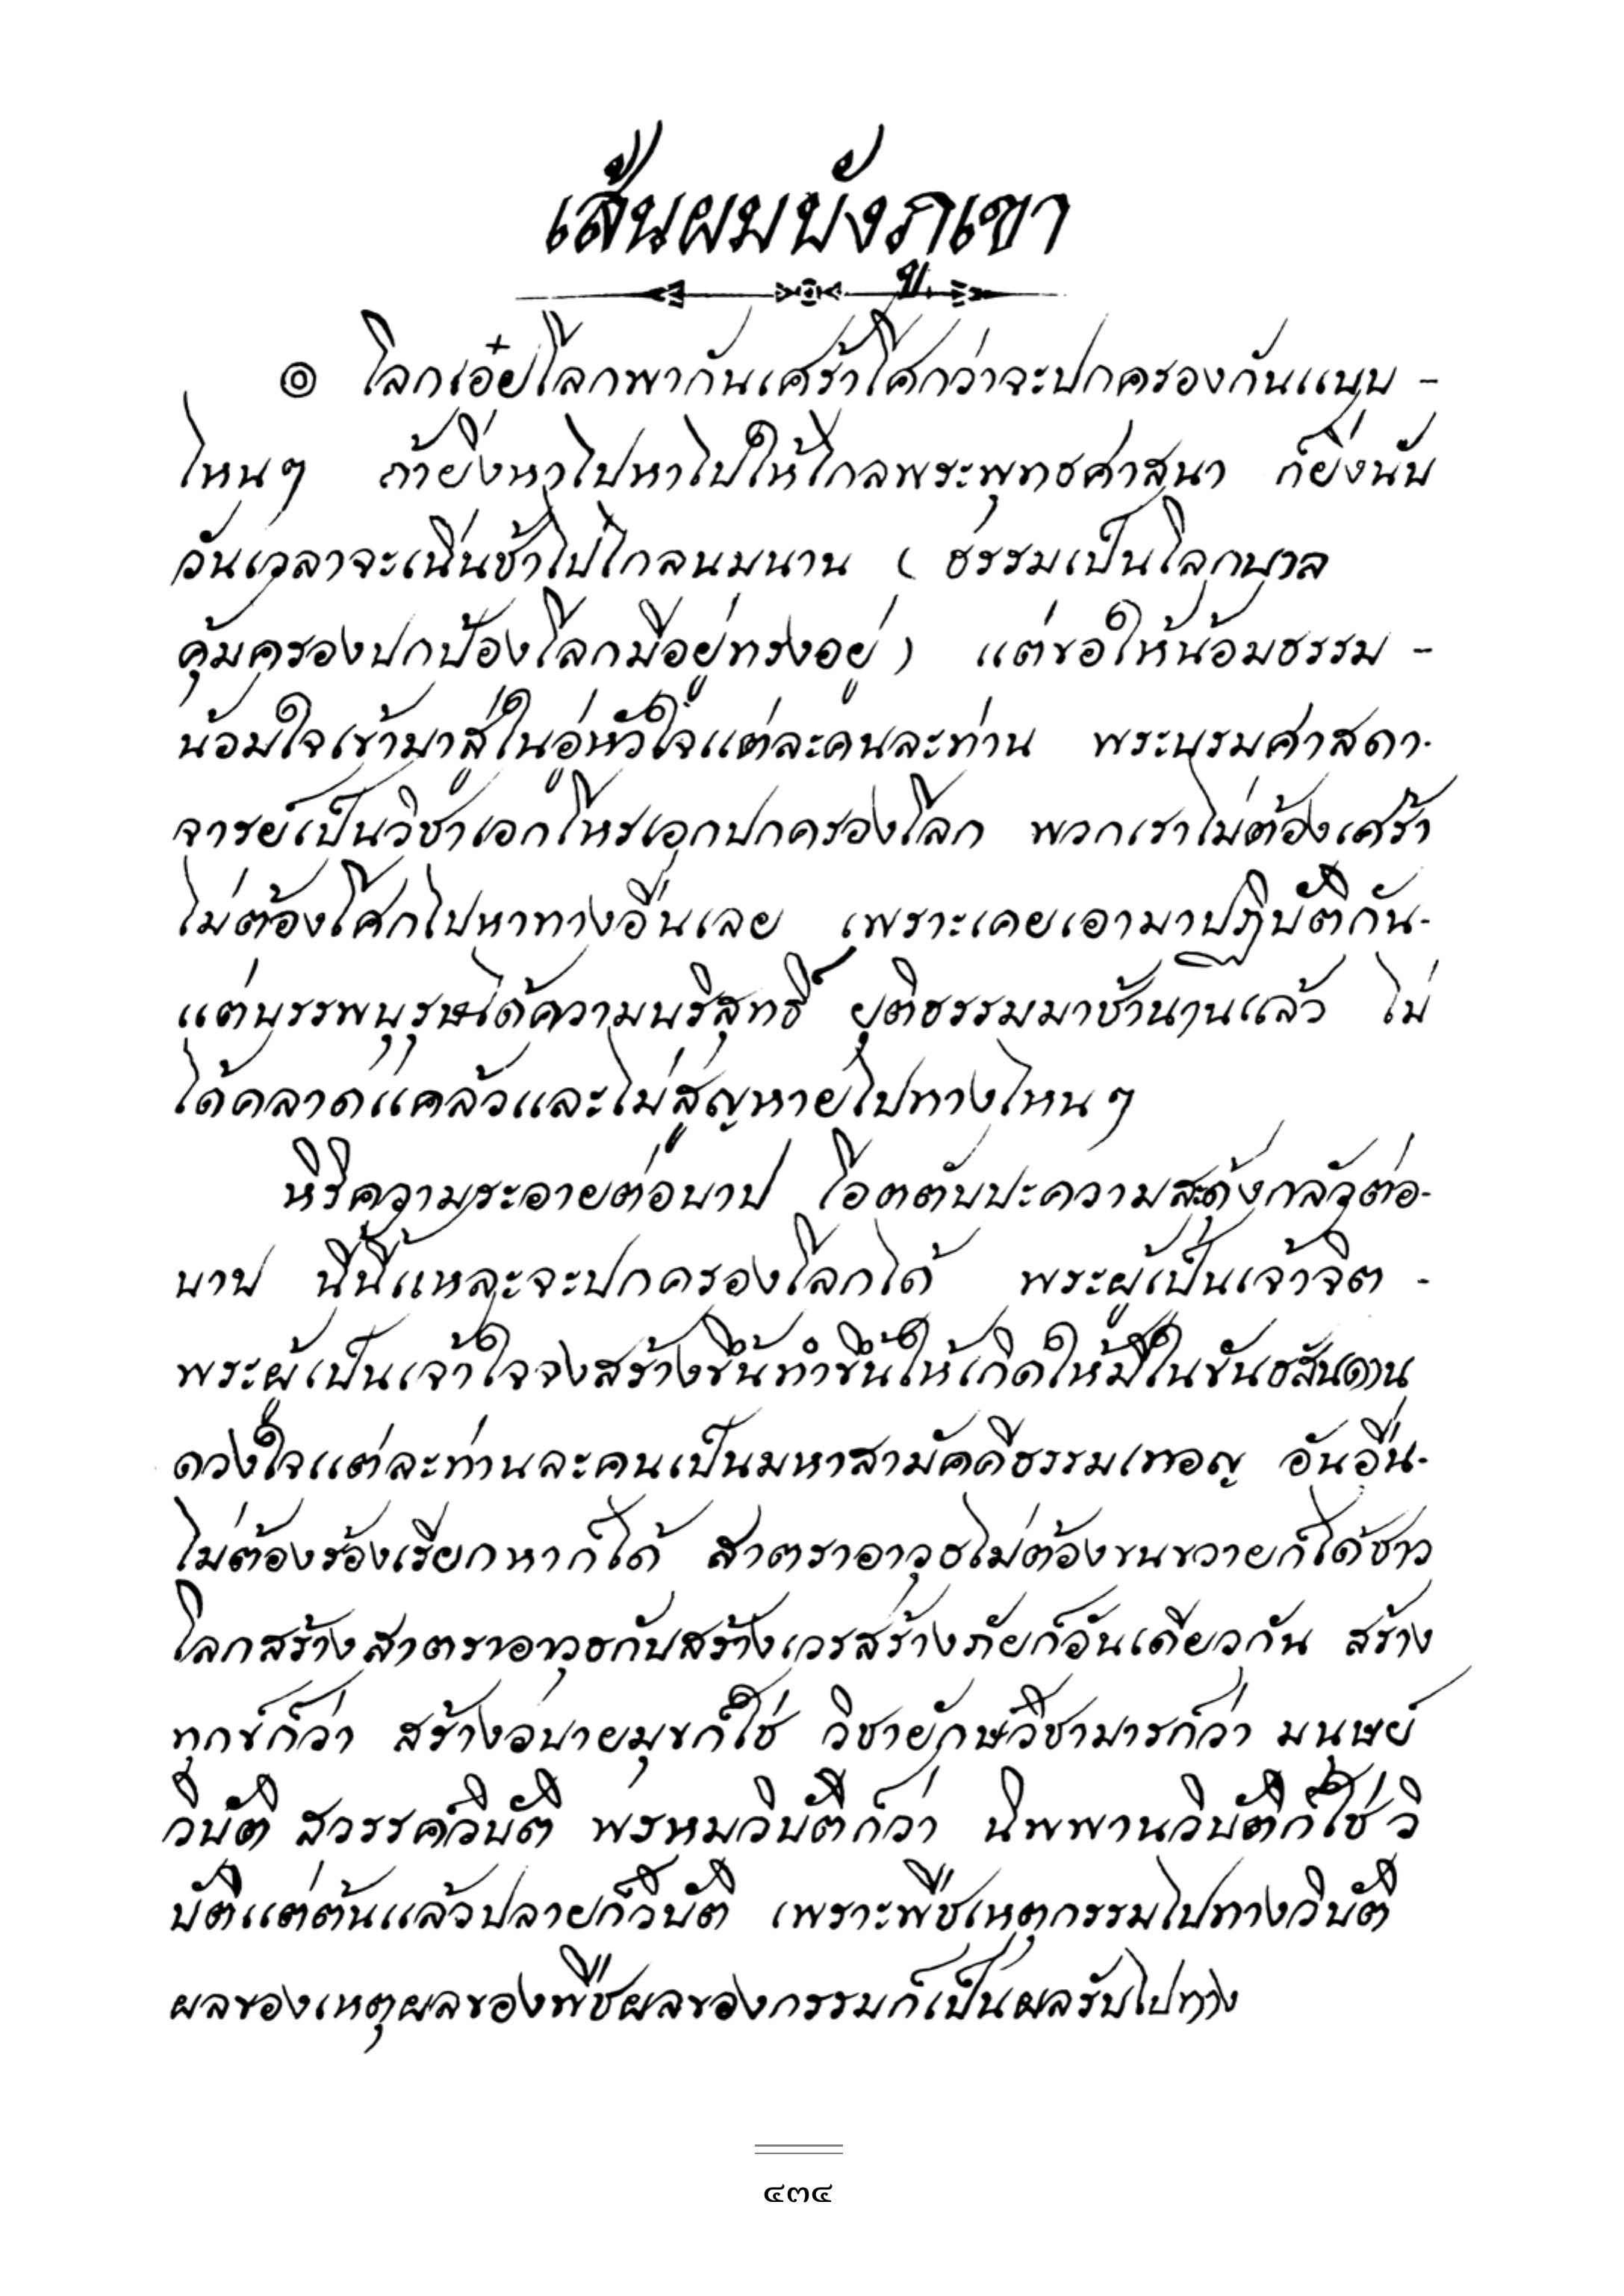 เส้นผมบังภูเขา
๏ โลกเอ๋ยโลกพากันเศร้าโศกว่าจะปกครองกันแบบ -
ไหนๆ ถ้ายิ่งหาไปหาไปให้ไกลพระพุทธศาสนา ก็ยิ่งนับ
วันเวลาจะเนิ่นช้าไปไกลนมนาน ( ธรรมเป็นโลกบาล
คุ้มครองปกป้องโลกมีอยู่ทรงอยู่ ) แต่ขอให้น้อมธรรม -
น้อมใจเข้ามาสู่ในอู่หัวใจแต่ละคนละท่าน พระบรมศาสดา-
จารย์เป็นวิชาเอกโหรเอกปกครองโลก พวกเราไม่ต้องเศร้า
ไม่ต้องโศกไปหาทางอื่นเลย เพราะเคยเอามาปฏิบัติกัน-
แต่บรรพบุรุษได้ความบริสุทธิ์ ยุติธรรมมาช้านานแล้ว ไม่
ได้คลาดแคล้วและไม่สูญหายไปทางไหนๆ
หิริความระอายต่อบาป โอตตัปปะความสะดุ้งกลัวต่อ-
บาป นี้นี้แหละจะปกครองโลกได้ พระผู้เป็นเจ้าจิต -
พระผู้เป็นเจ้าใจจงสร้างขึ้นทำขึ้นให้เกิดให้มีในขันธสันดาน
ดวงใจแต่ละท่านละคนเป็นมหาสามัคคีธรรมเทอญ อันอื่น-
ไม่ต้องร้องเรียกหาก็ได้ สาตราอาวุธไม่ต้องขนขวายก็ได้ชาว
โลกสร้างสาตราอาวุธกับสร้างเวรสร้างภัยก็อันเดียวกัน สร้าง
ทุกข์ก็ว่า สร้างอบายมุขก็ใช่ วิชายักษ์วิชามารก็ว่า มนุษย์
วิบัติ สวรรค์วิบัติ พรหมวิบัติก็ว่า นิพพานวิบัติก็ใช่ วิ
บัติแต่ต้นแล้วปลายก็วิบัติ เพราะพืชเหตุกรรมไปทางวิบัติ
ผลของเหตุผลของพืชผลของกรรมก็เป็นผลรับไปทาง
๔๓๔